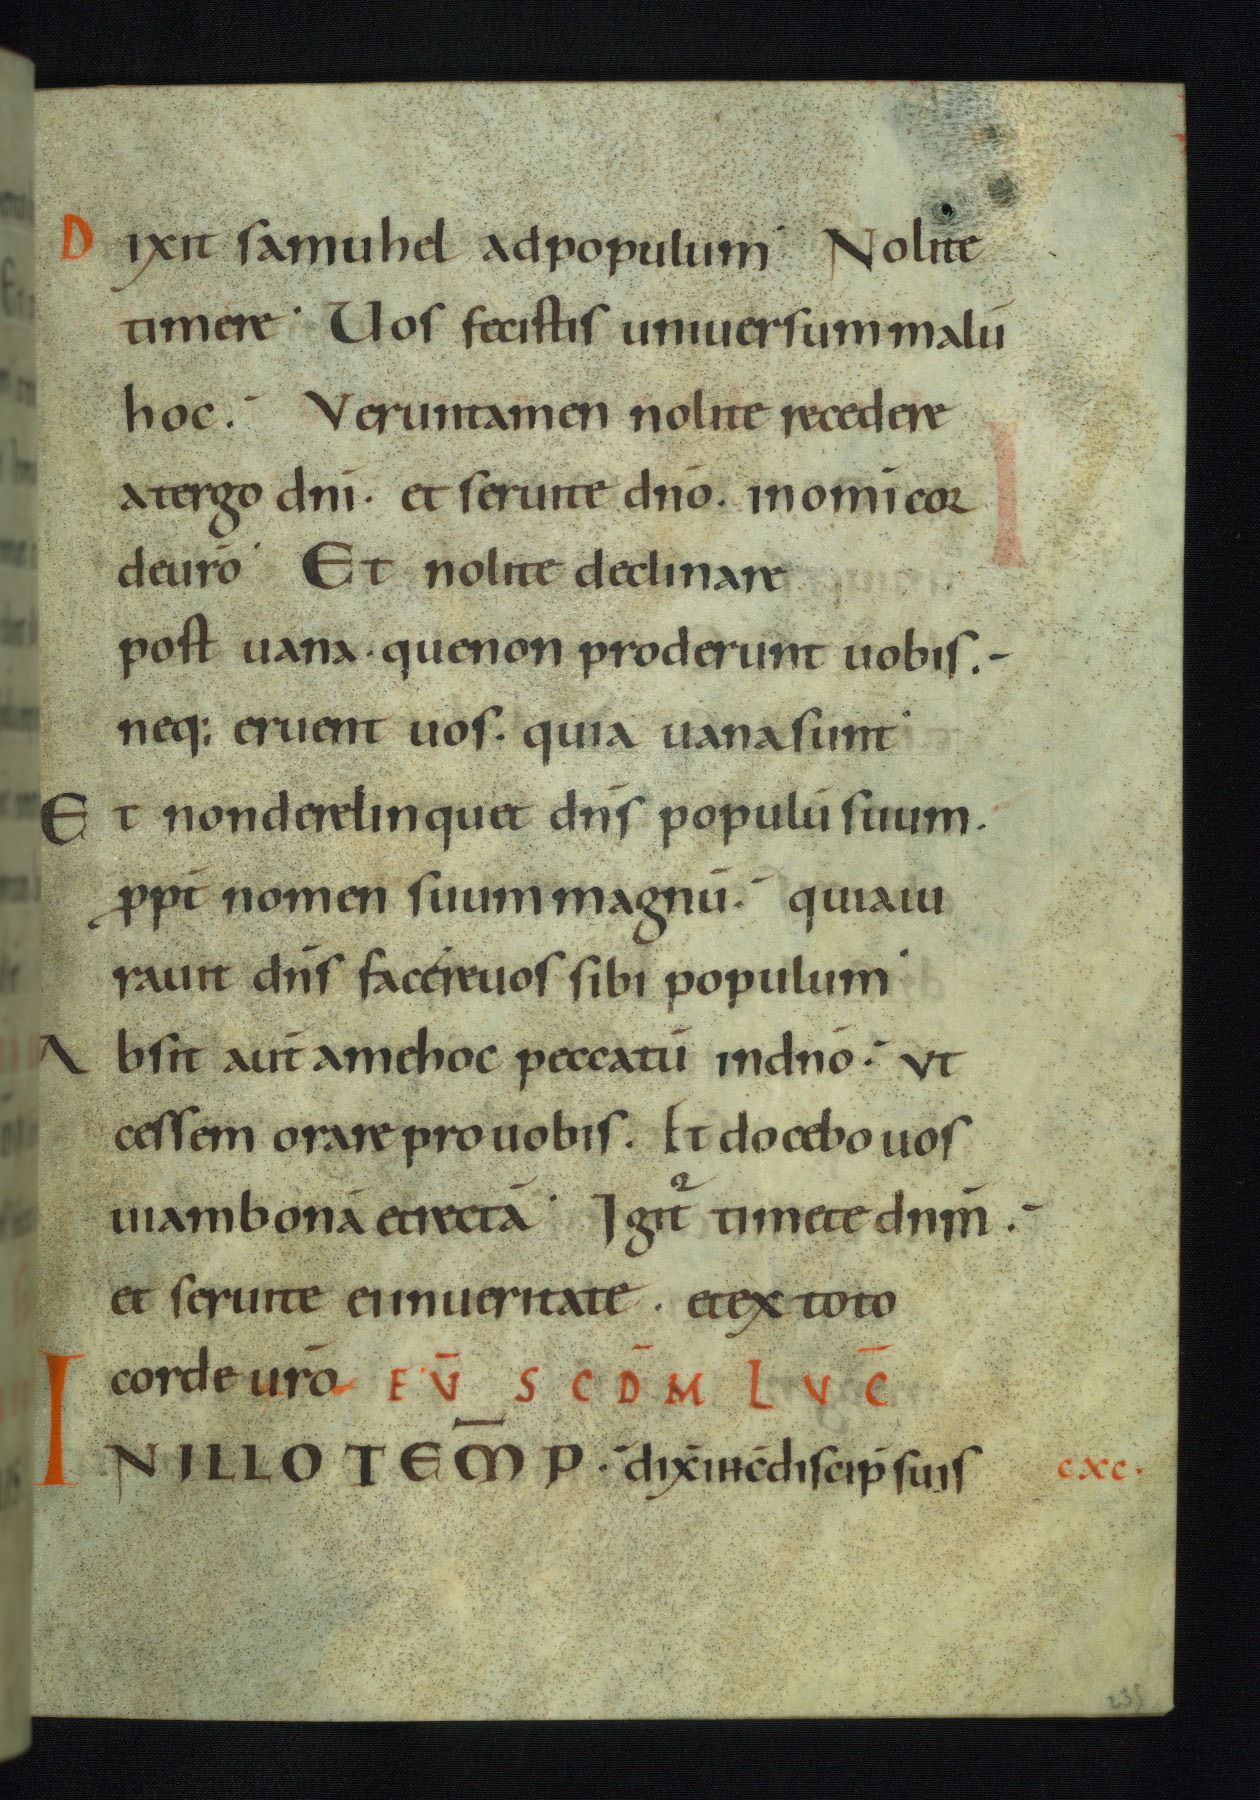 Dixit samuhel adpopulum· Nolite
timere· Uos fecistis uniuersum malū
hoc.- Veruntamen nolite recedere
atergo dnī. et seruite dnō. in omī cor
deurō· Et nolite declinare
post uana. quenon proderunt uobis.-
neq; eruent uos. quia uana sunt·
Et nonderelinquet dnīs populū suum.
ppt̄ nomen suum magnū.- quiaiu
rauit dnīs facereuos sibi populum·
Absit aut̄ amehoc peccatū indnō.- vt
cessem orare pro uobis. Et docebo uos
uiambonā etrectā· Igit᷑ timete dnm̄.-
et seruite eiinueritate. etex toto
corde urō EV̄ SCD̄M LVC̄
INILLO TEM̄P.- dix̄ ih̄c discip̄ suis
cxc.
235